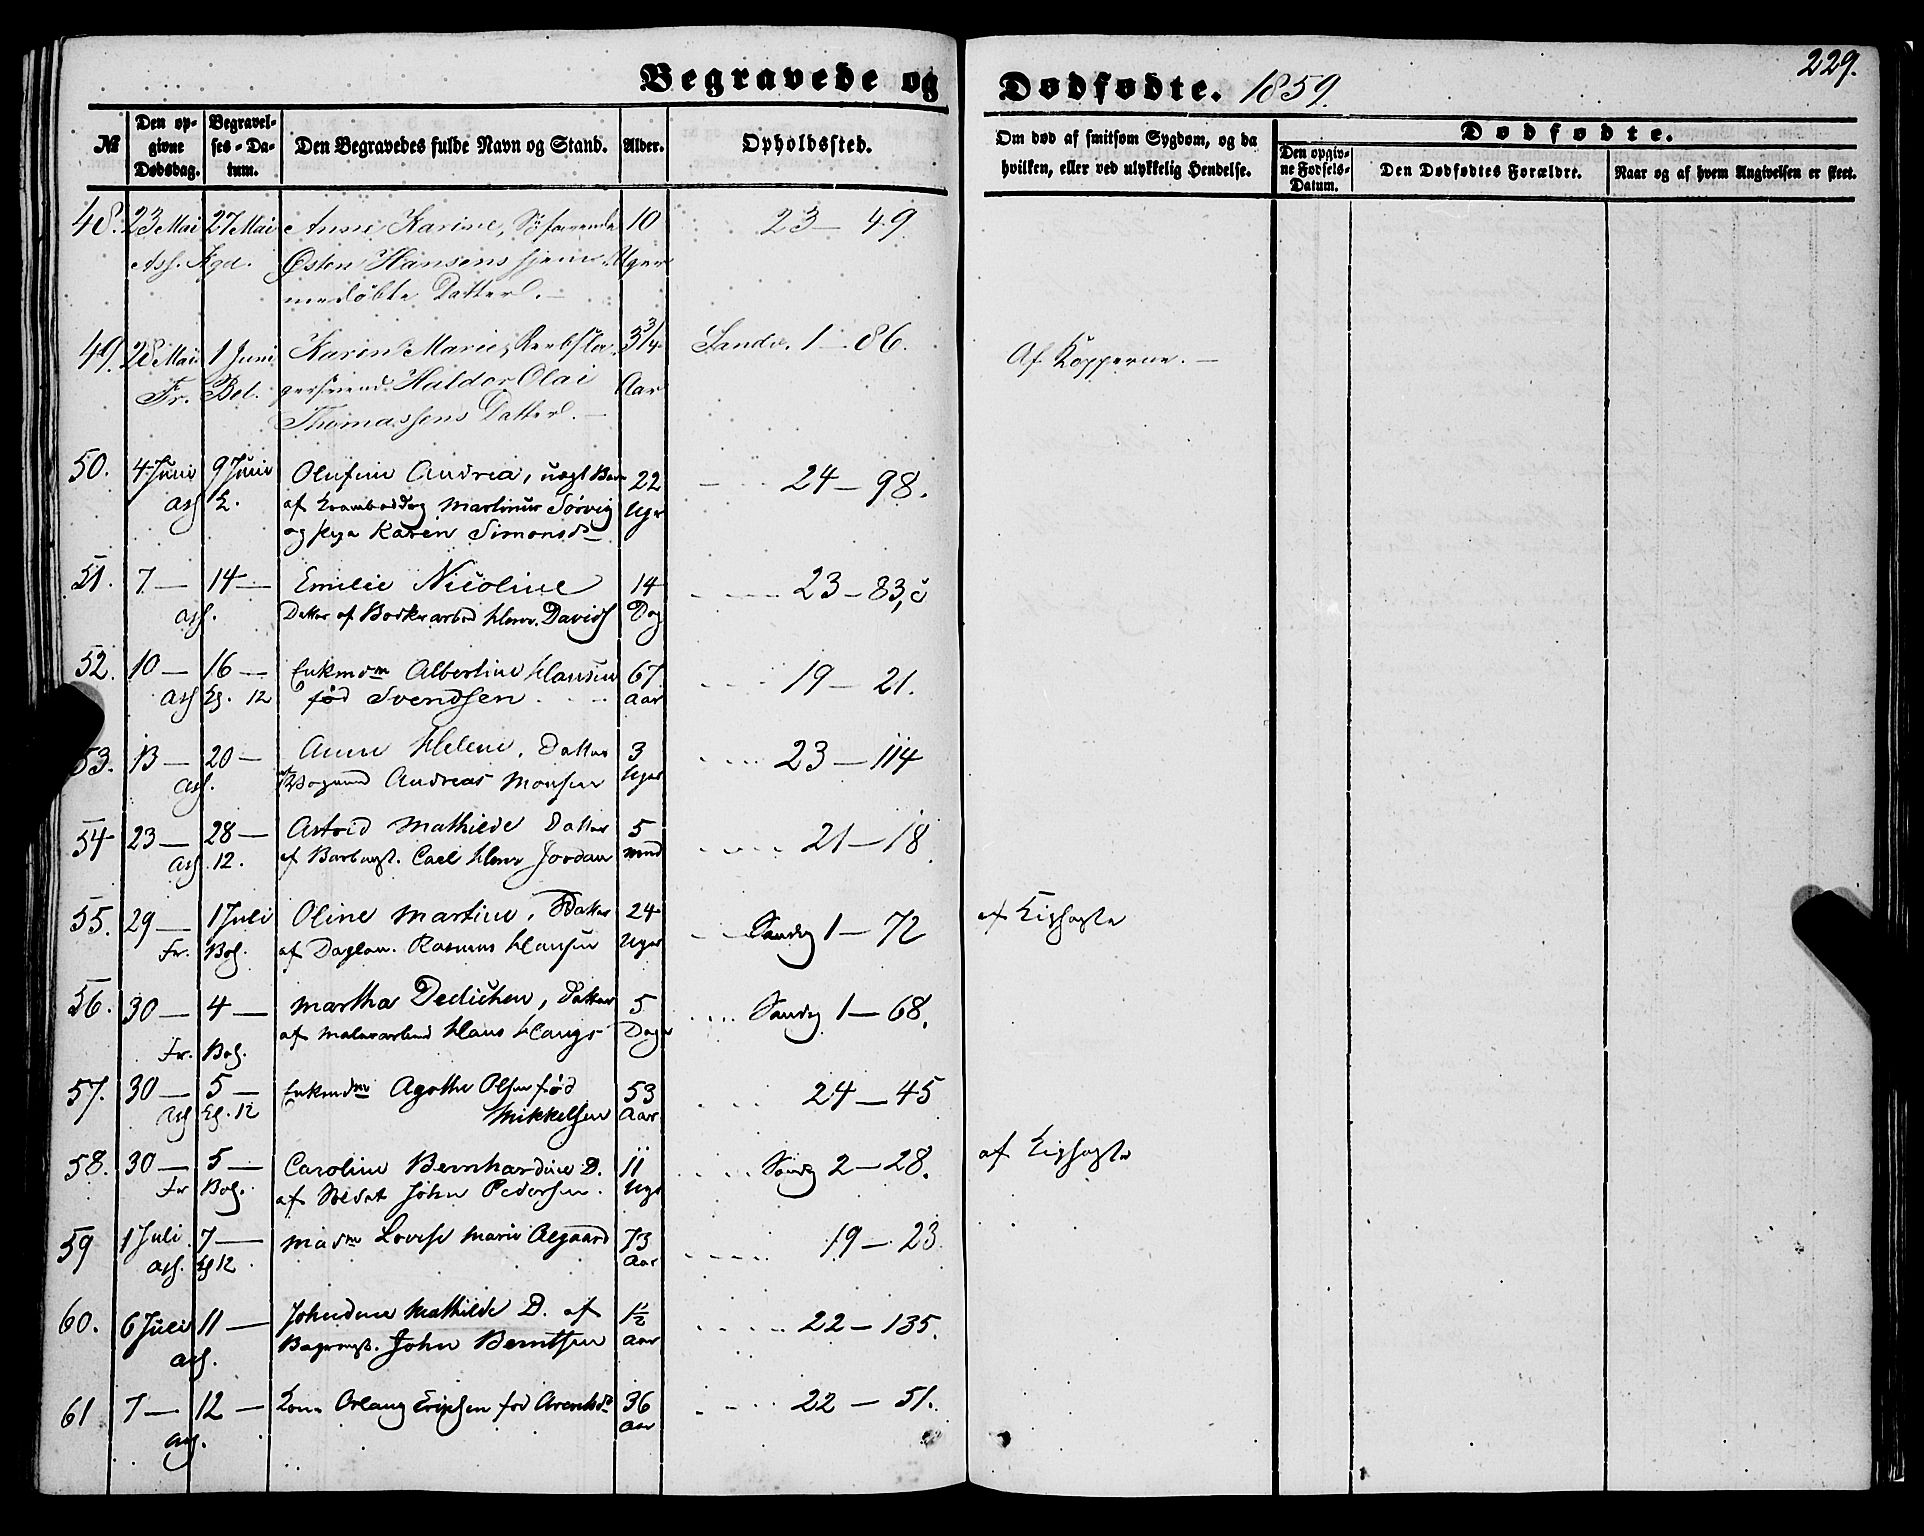 Begravede og Dødfødte. 1859. 229.
№ Den op- Begravel- Den Begravedes fulde Navn og Stand. Alder. Opholdssted. Om død af smitsom Sygdom, og da Dødfødte.
givne ses-Da- hvilken, eller ved ulykkelig Hendelse. Den opgiv- Den Dødfødtes Forældre. Naar og af hvem Angivelsen er skeet.
Dødsdag. tum. ne Fødsels-
Datum.
48. 23 Mai 27 Mai Anne Karine, Söfarende 10 23 — 49
Ass. Kgd. Østen Hansens hjem- Uger
medöbte Datter. —
49. 28 Mai 1 Juni Karen Marie, Reebsla- 3 3/4 Sandv. 1 — 86. Af Kopperne. —
Fr. Bol. gersvend Haldor Olai Aar
Thomassens Datter. —
50. 4 Juni 9 Juni Olufine Andrea, uægt Barn 22 24 — 98.
ass af Martinus Sørvig Uger
og Pige Karen Simonsd.
51. 7 — 14 — Emilie Nicoline 14 23 — 83, c
ass. Datter af Bødkerarbed Henr. Davids Dag
52. 10 — 16 — Enkemdm Albertine Hansen 67 19 — 21.
ass Eg. 12 fød Svendsen Aar
53. 13 — 20 — Anne Helene, Datter 3 23 — 114
ass. af Andreas Monsen Uger
54 23 — 28 — Astrid Mathilde Datter 5 21 — 18
ass. 12. af Carl Henr Jordan mnd
55. 29 — 1 Juli Oline Martine, Datter 24 Sandvg 1 — 72 af Kighoste
Fr. Bol. af Dagløn. Rasmus Hansen Uger
56. 30 — 4 — Martha Dedichen, Datter 5 Sandvg 1 — 68.
Fr. Bol. af Malerarbeid Hans Haugs Dage
57. 30 — 5 — Enkemdm Agathe Olsen fød 53 24 — 45
ass Eg. 12 Mikkelsen Aar
58. 30 — 5 — Caroline Bernhardine D. 11 Sandvg 2 — 28. af Kighoste
Fr Bol. af Soldat John Pedersen. Uger
59 1 Juli 7 — Madm Lovise Marie Aagaard 73 19 — 23.
ass. Eg 12 Aar
60. 6 Juli 11 — Johndine Mathilde D. af 1 1/2 22 — 135.
ass. Bagermst. John Berntsen Aar
61 7 — 12 — Kone Orlaug Ericksen fød Arentsd. 36 22 — 51.
ass. Aar